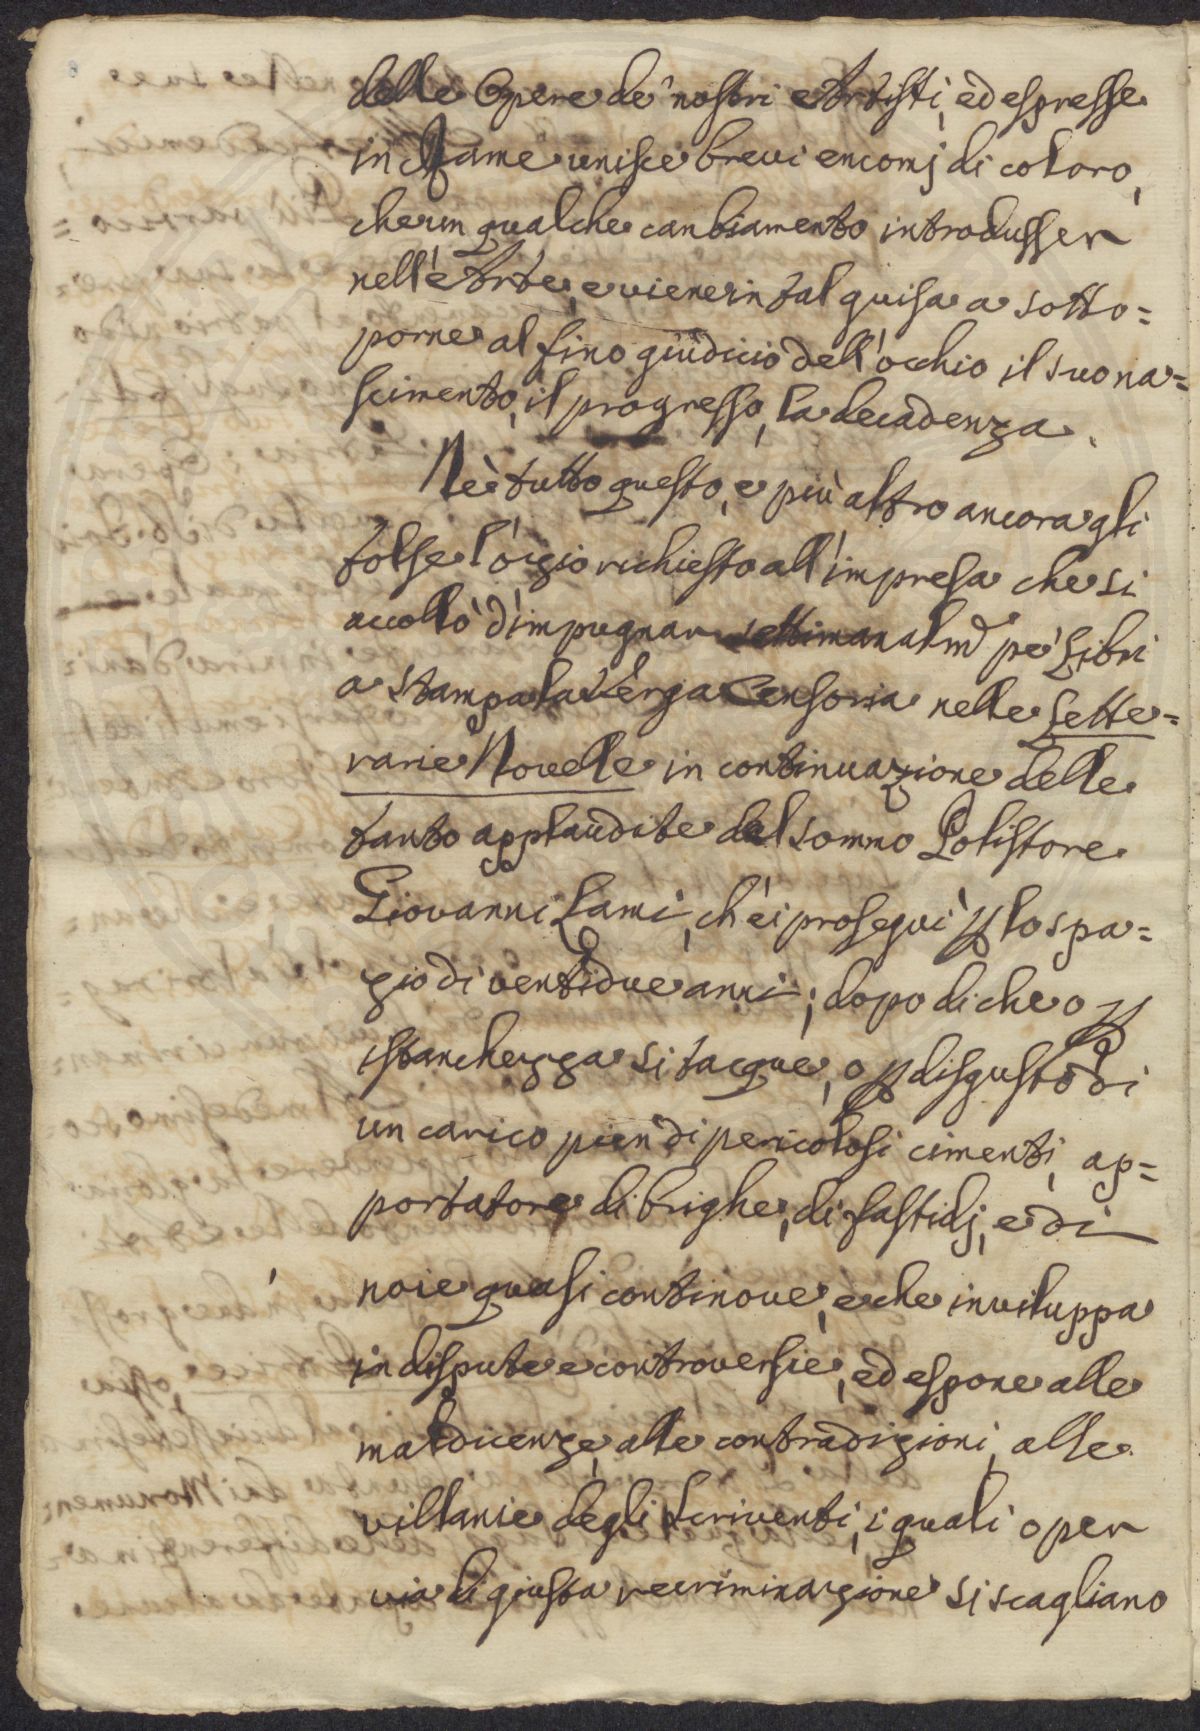 delle Opere de' nostri Artisti, ed espresse
in Rame unisce brevi encomj di coloro,
che un qualche canbiamento introdusser
nell'Arte, e viene in tal guisa a sotto=
porne al fino giudicio dell'occhio il suo na=
scimento, il progresso, la decadenza.
Nè tutto questo, e più altro ancora gli
tolse l'ozio richiesto all'impresa che si
accollò d'impugnar settimanalm̃ pe' Libri
a stampa la Verga Censoria nelle Lette=
rarie Novelle in continuazione delle
tanto applaudite del sommo Polistore
Giovanni Lami, ch'ei proseguì ꝑ lo spa=
zio di ventidue anni; dopo di che o ꝑ
istanchezza si tacque, o ꝑ disgusto di
un carico pien di pericolosi cimenti, ap=
portatore di brighe, di fastidj, e di
noie quasi continove, e che inviluppa
in dispute e controversie, ed espone alle
maldicenze, alle contradizioni, alle
villanie degli Scriventi, i quali o per
via di giusta recriminazione si scagliano